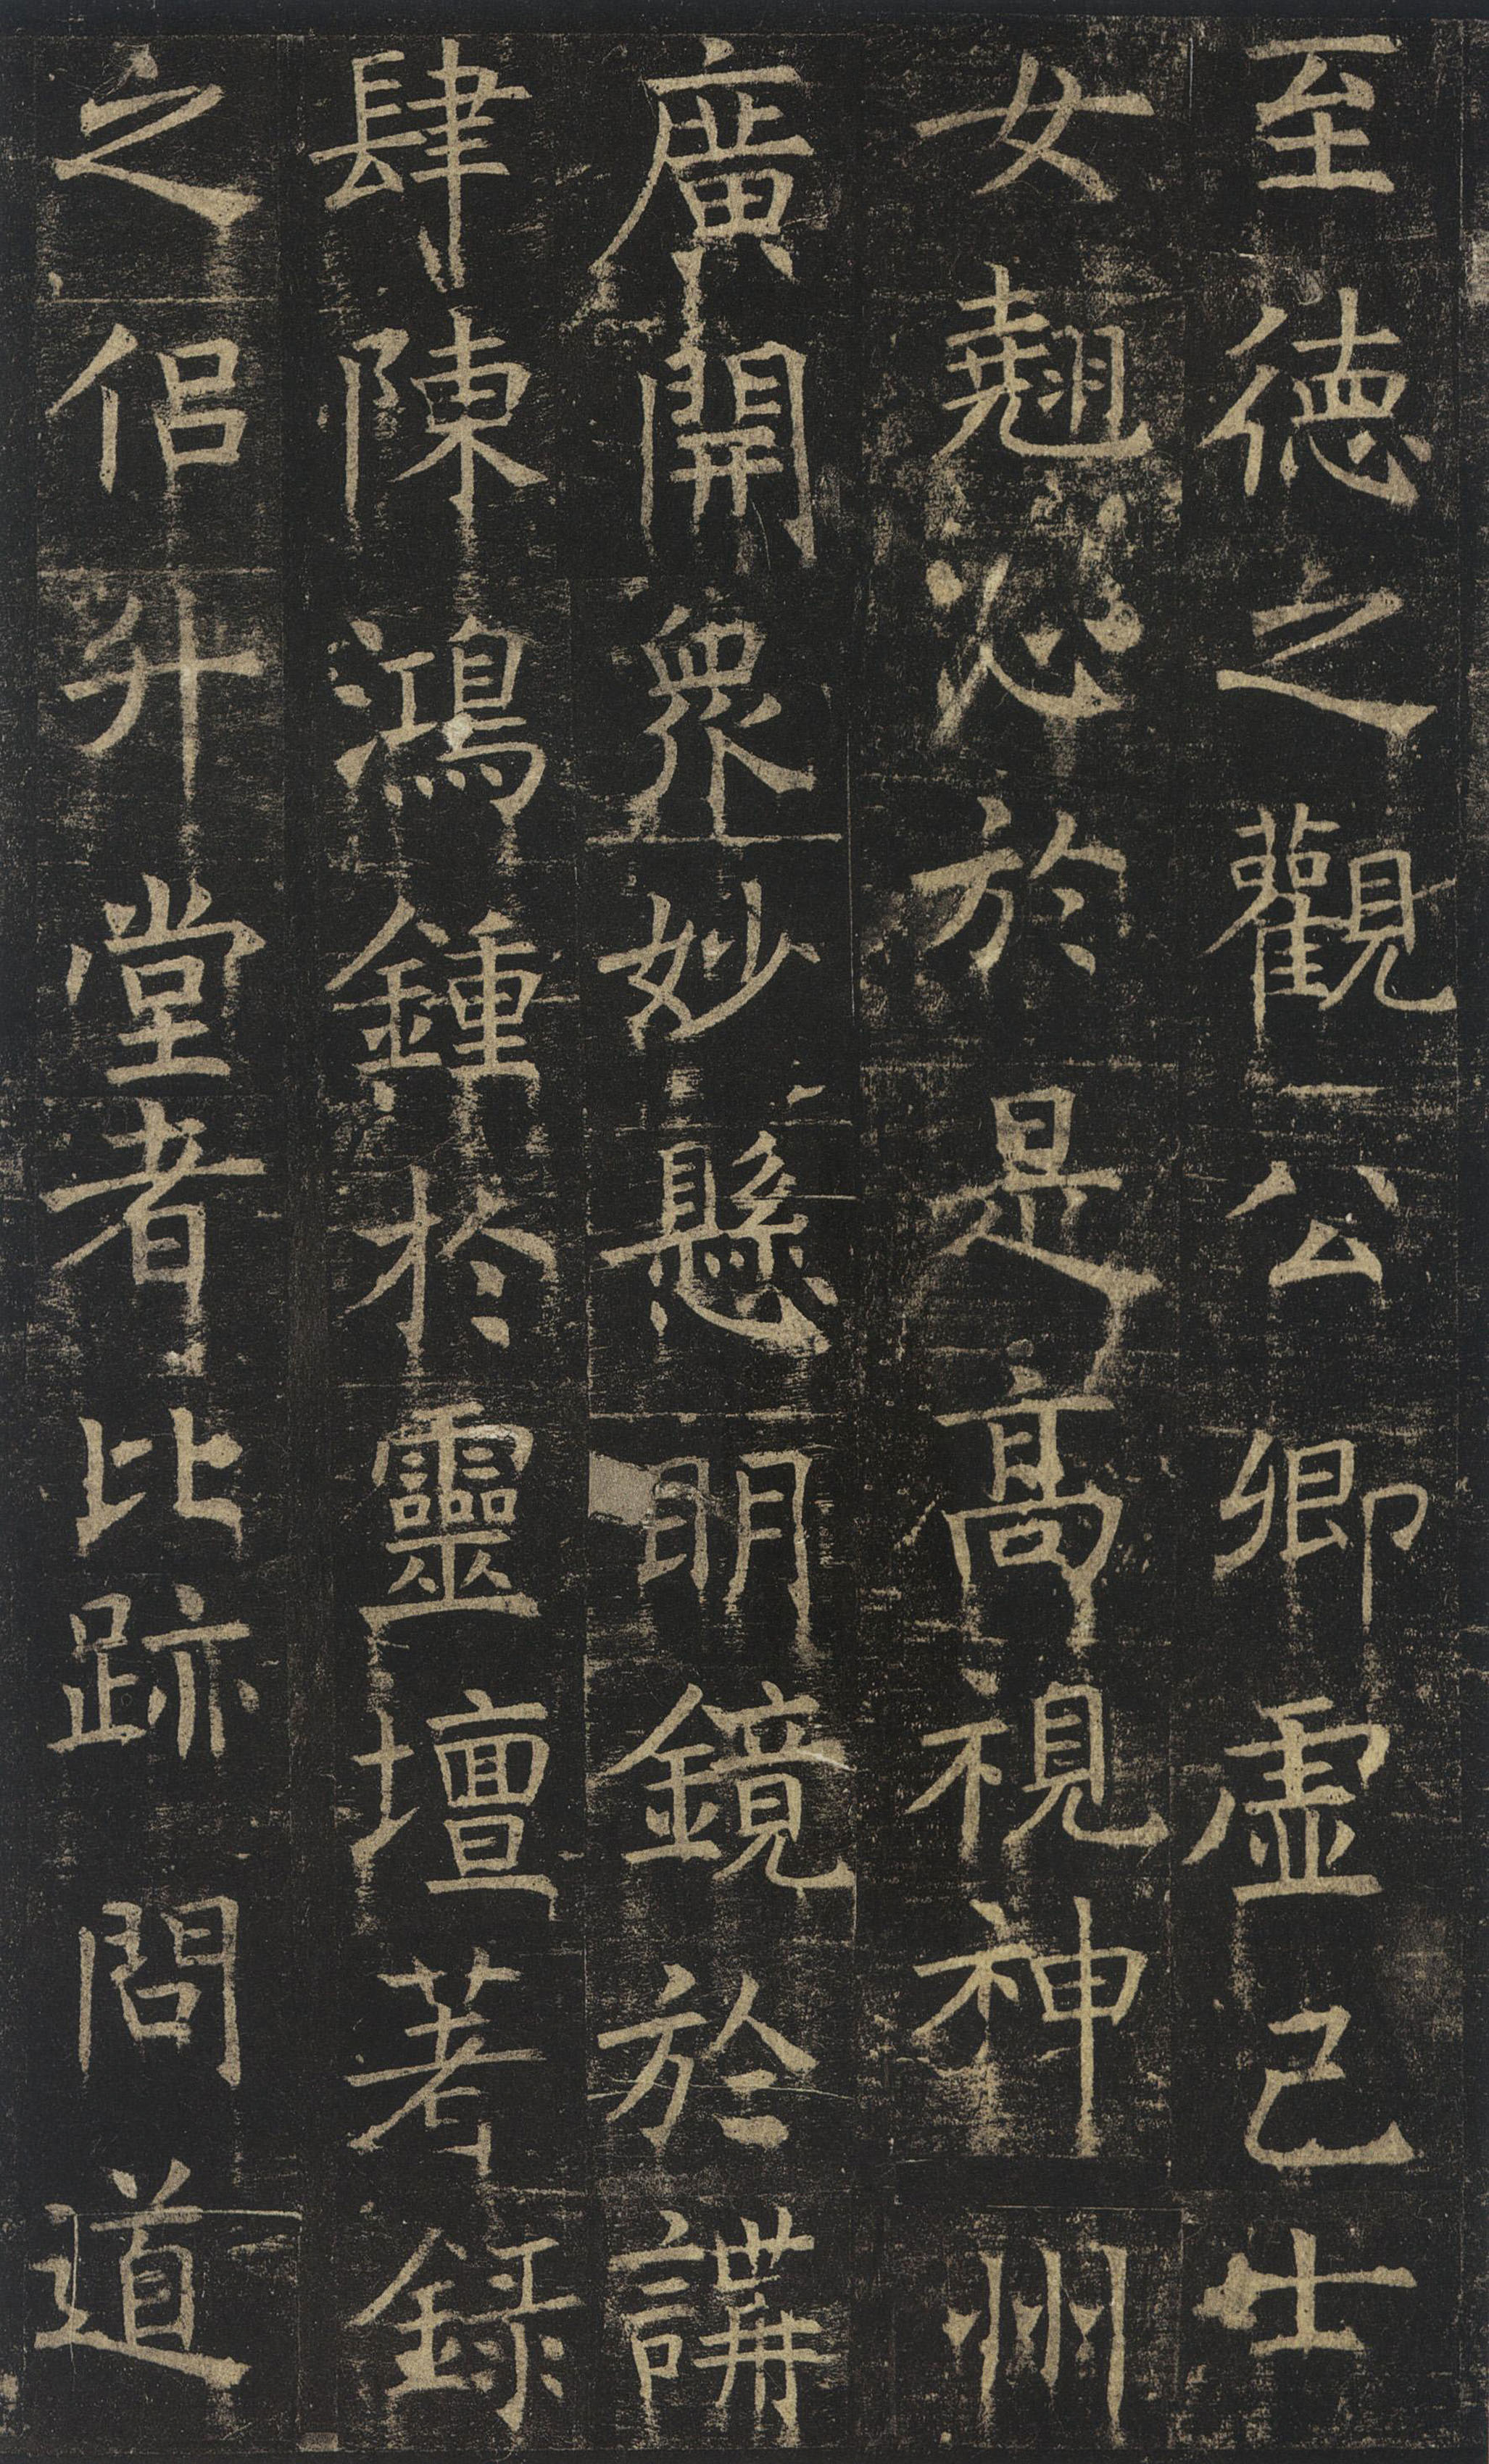 至德之觀公卿虛己士
女翹心於是高視神州
廣開衆妙懸明鏡於講
肆陳鴻鍾於靈壇著錄
之侶升堂者比跡問道